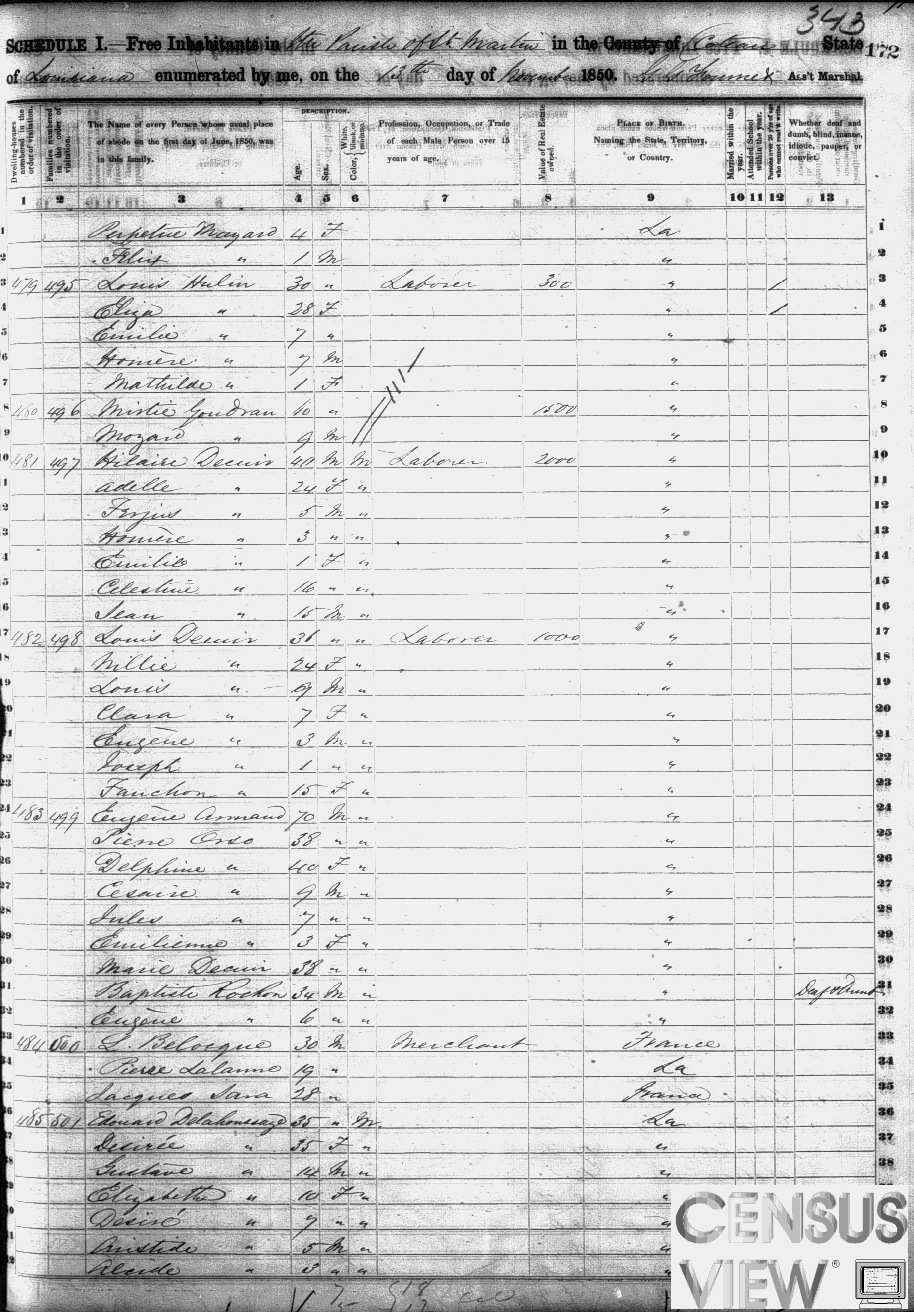 343
SCHEDULE I.—Free Inhabitants in the Parish of St Martin in the County of State 172
of Louisiana enumerated by me, on the 13th day of November 1850. Ass't Marshal.
Dwelling-houses numbered in the order of visitation.
Families numbered in the order of visitation.
The Name of every Person whose usual place of abode on the first day of June, 1850, was in this family.
DESCRIPTION.
Age.
Sex.
Color, White, black, or mulatto.
Profession, Occupation, or Trade of each Male Person over 15 years of age.
Value of Real Estate owned.
PLACE OF BIRTH. Naming the State, Territory, or Country.
Married within the year.
Attended School within the year.
Persons over 20 y'rs of age who cannot read & write.
Whether deaf and dumb, blind, insane, idiotic, pauper, or convict.
1 2 3 4 5 6 7 8 9 10 11 12 13
1 Perpetue Mazard 4 F La 1
2 Felix " 1 M " 2
3 479 495 Louis Hulin 30 " Laborer 300 " / 3
4 Eliza " 28 F " / 4
5 Emilie " 7 " " 5
6 Homère " 7 M " 6
7 Mathilde " 1 F " 7
8 480 496 Mistie Goudran 40 " 1500 " 8
9 Mozard " 9 M " 9
10 481 497 Hilaire Decuir 40 M M Laborer 2000 " 10
11 Adelle " 24 F " " 11
12 Ferjus " 5 M " " 12
13 Homère " 3 " " " 13
14 Emilie " 1 F " " 14
15 Celestine " 16 " " " 15
16 Jean " 15 M " " 16
17 482 498 Louis Decuir 36 " " Laborer 1000 " 17
18 Nillie " 24 F " " 18
19 Louis " 9 M " " 19
20 Clara " 7 F " " 20
21 Eugène " 3 M " " 21
22 Joseph " 1 " " " 22
23 Fanchon " 15 F " " 23
24 483 499 Eugène Armand 70 M " " 24
25 Pierre Orso 38 " " " 25
26 Delphine " 40 F " " 26
27 Cesaire " 9 M " " 27
28 Jules " 7 " " " 28
29 Emilienne " 3 F " " 29
30 Marie Decuir 38 " " " 30
31 Baptiste Rochon 34 M " " Deaf & Dumb 31
32 Eugène " 6 " " " 32
33 484 500 L. Belocque 30 M Merchant France 33
34 Pierre Lalanne 19 " La 34
35 Jacques Sara 28 " France 35
36 485 501 Edouard Delahoussaye 35 " M La 36
37 Desirée " 35 F " " 37
38 Gustave " 14 M " " 38
Elizabeth " 10 F " "
Desiré " 7 " " "
Aristide " 5 M " "
Alcide " 3 " "
CENSUS
VIEW®